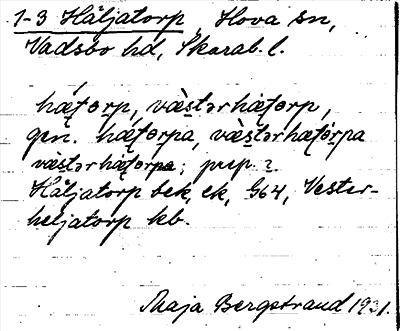 1-3 Häljatorp, Hova sn,
Vadsbo hd, Skarab. l.
hǽƫorp, væ̀stərhæƫorp,
gen. hæƫorpa, væ̀stərhæƫórpa
væstərhæƫorpa; prep. ?
Häljatorp sek, ek, G64, Vester-
heljatorp kb.
Maja Bergstrand 1931.